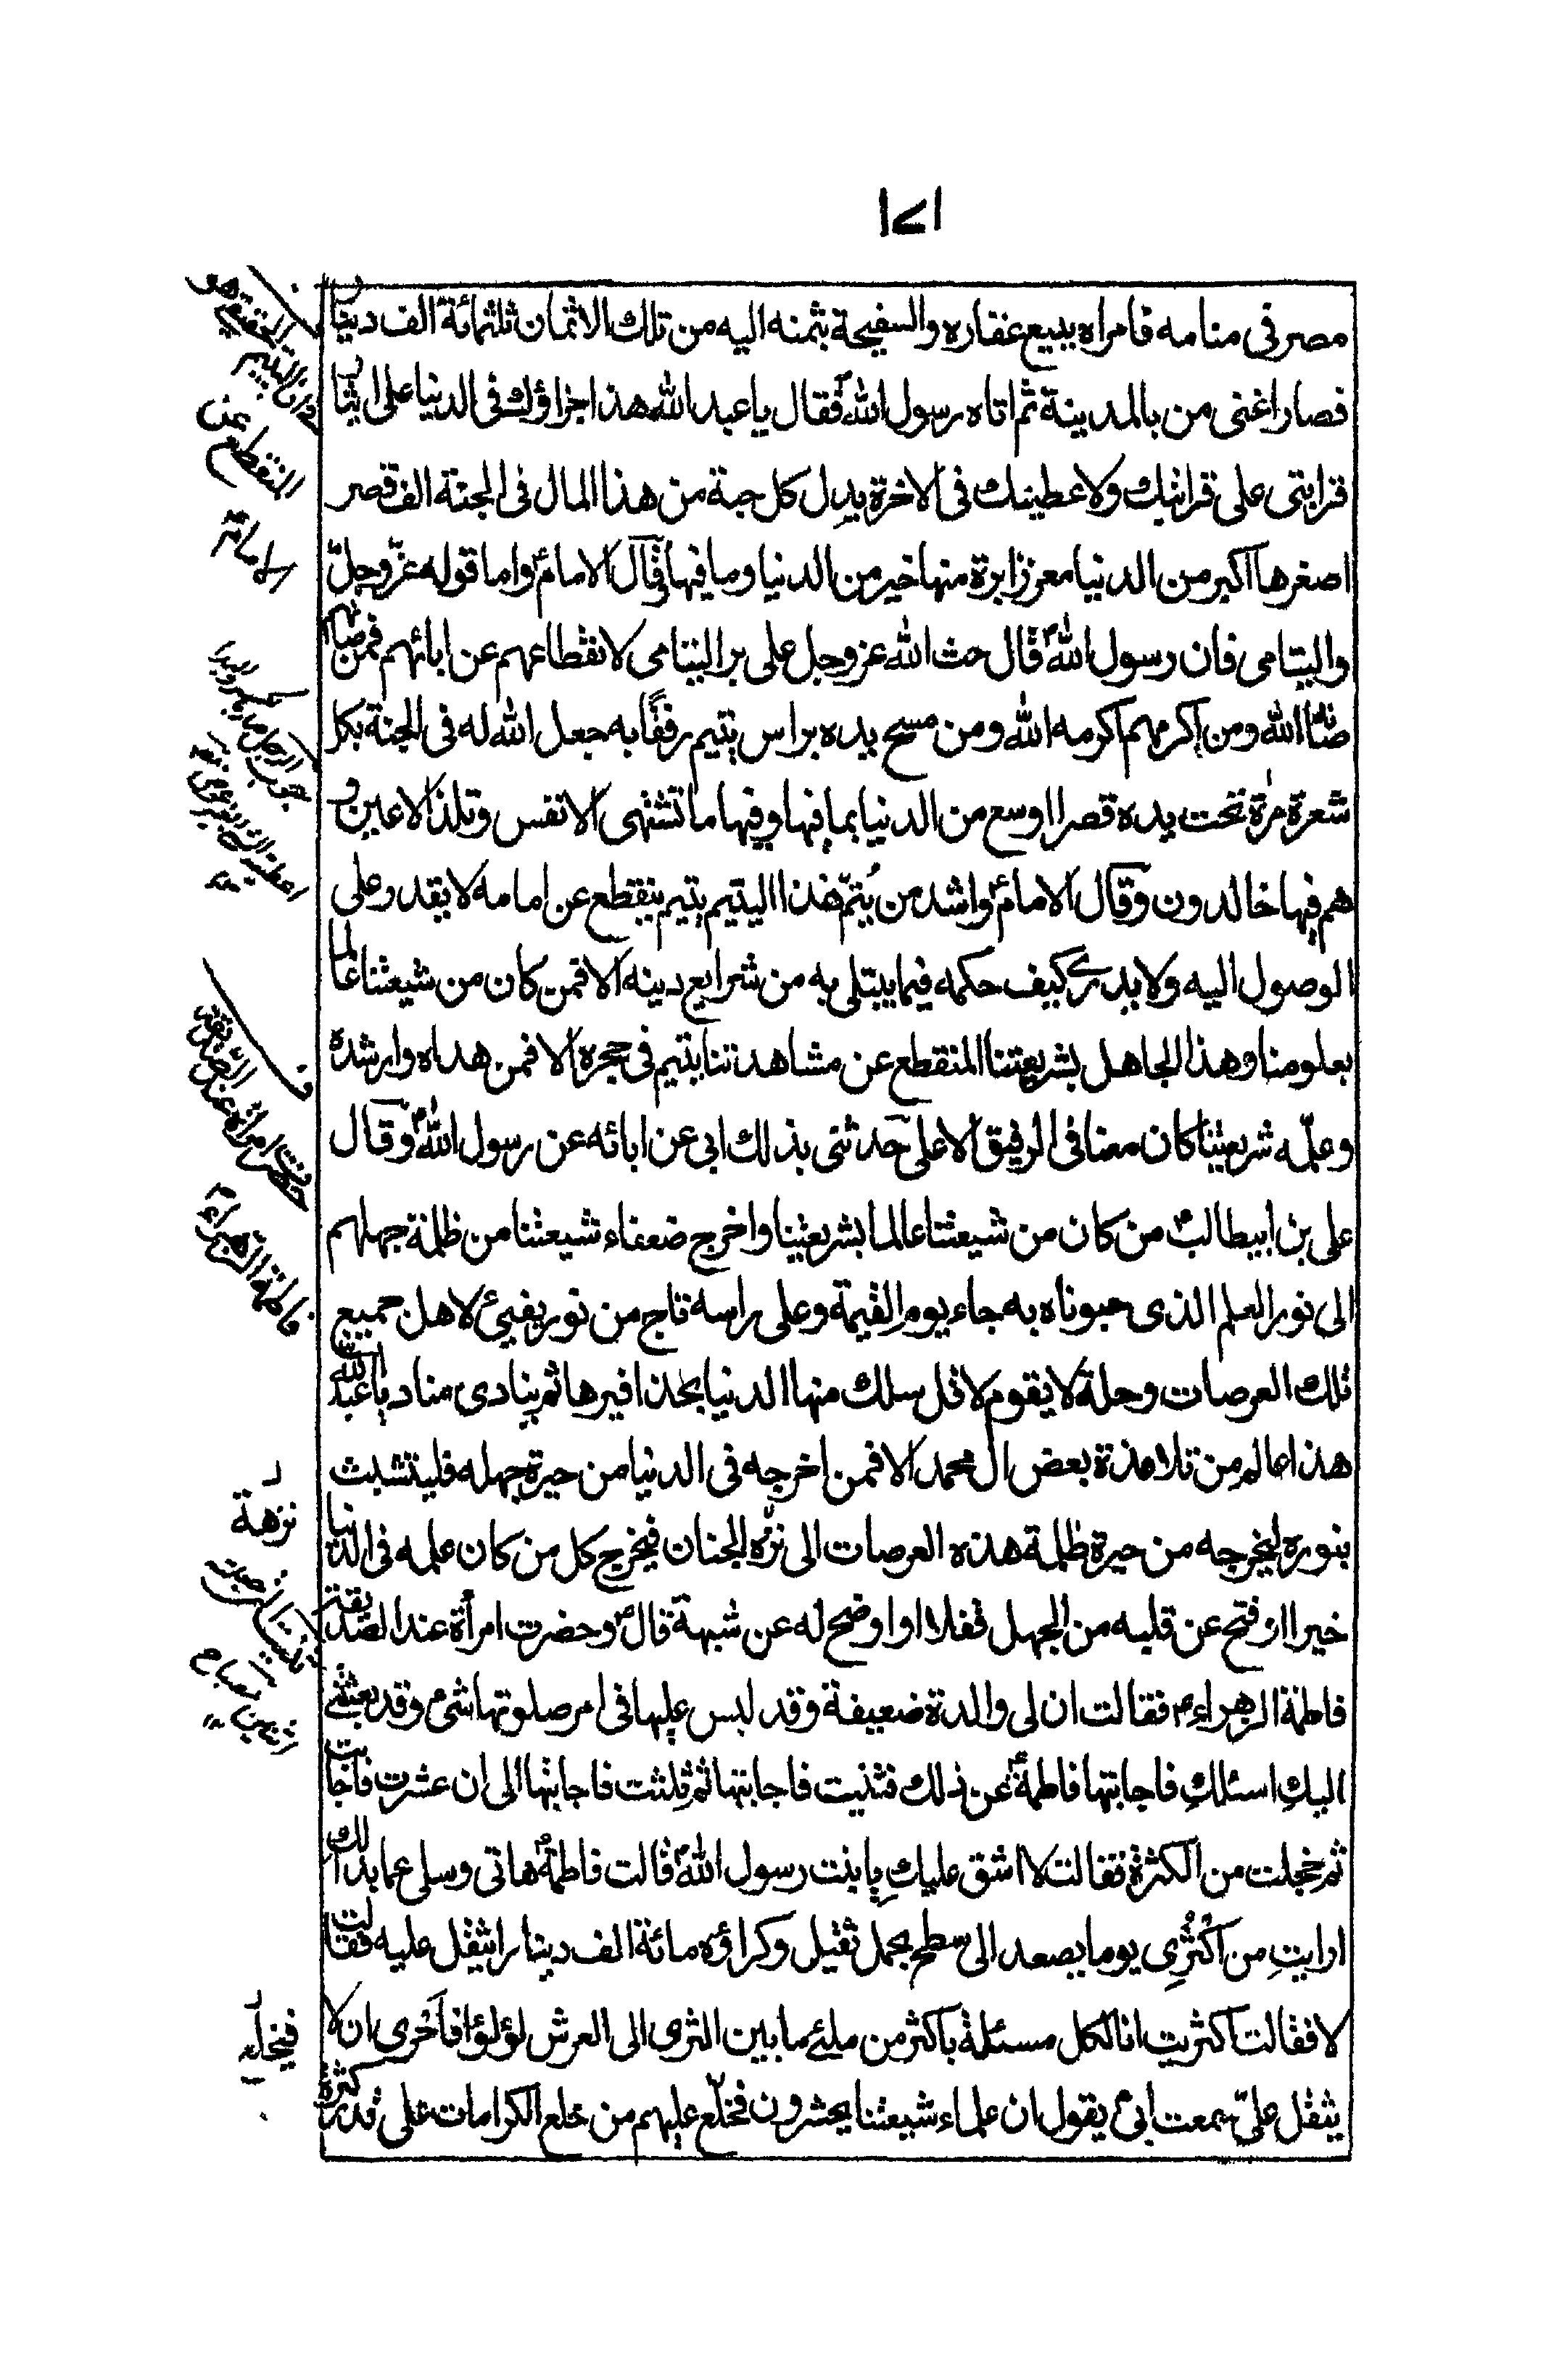 ١٤١
مصر فى منامه فامراه ببيع عقاره والسفيحة بثمنه اليه من تلك الاثمان ثلثمائة الف دينار
فصار اغنى من بالمدينة ثم اتاه رسول الله فقال يا عبد الله هذا جزاؤك فى الدنيا على ايثار
قرابتى على قرابتك ولاعطينك فى الاخرة بدل كل حبة من هذا المال فى الجنة الف قصر
اصغرها اكبر من الدنيا مغرز ابرة منها خير من الدنيا وما فيها قال الامام واما قوله عزّ وجلّ
واليتامى فان رسول الله قال حث الله عز وجل على بر اليتامى لانقطاعهم عن ابائهم فمن صانهم
صانه الله ومن اكرمهم اكرمه الله ومن مسح يده براس يتيم رفقًا به جعل الله له فى الجنة بكل
شعرة مرة تحت يده قصرا اوسع من الدنيا بما فيها وفيها ما تشتهى الانفس وتلذ الاعين و
هم فيها خالدون وقال الامام واشد من يُتم هذا اليتيم يتيم ينقطع عن امامه لا يقدر على
الوصول اليه ولا يدرى كيف حكمه فيما يبتلى به من شرايع دينه الا فمن كان من شيعتنا عالما
بعلومنا وهذا الجاهل بشريعتنا المنقطع عن مشاهدتنا يتيم فى حجره الا فمن هداه وارشده
وعلّمه شريعتنا كان معنا فى الرفيق الاعلى حدثنى بذلك ابى عن ابائه عن رسول الله وقال
على بن ابيطالب من كان من شيعتنا عالما بشريعتنا واخرج ضعفاء شيعتنا من ظلمة جهلهم
الى نور العلم الذى حبوناه به جاء يوم القيمة وعلى راسه تاج من نور يضيئ لاهل جميع
تلك العرصات وحلة لا يقوم لاقل سلك منها الدنيا بحذافيرها ثم ينادى مناد يا عباد الله
هذا عالم من تلامذة بعض ال محمد الا فمن اخرجه فى الدنيا من حيرة جهله فليتشبث
بنوره ليخرجه من حيرة ظلمة هذه العرصات الى نزه الجنان فيخرج كل من كان علمه فى الدنيا
خيرا او فتح عن قلبه من الجهل قفلا او اوضح له عن شبهة قال وحضرت امرأة عند الصديقة
فاطمة الزهراء فقالت ان لى والدة ضعيفة وقد لبس عليها فى امر صلوتها شئ وقد بعثتنى
اليك اسئلك فاجابتها فاطمة عن ذلك فثنيت فاجابتها ثم ثلثت فاجابتها الى ان عشرت فاجابت
ثم خجلت من الكثرة فقالت لا اشق عليك يا بنت رسول الله قالت فاطمة هاتى وسلى عما بدالك
ارايتِ من اكترى يوما يصعد الى سطح بحمل ثقيل وكراؤه مائة الف دينار ايثقل عليه فقالت
لا فقالت اكتريت انا لكل مسئلة باكثر من ملئ ما بين الثرى الى العرش لؤلؤا فاحرى ان لا
يثقل علىّ سمعت ابى يقول ان علماء شيعتنا يحشرون فيخلع عليهم من خلع الكرامات على قدر كثرة
فى ان اليتيم الحقيقى هو
المنقطع عن
الامام
حضرت امرأة عند الصديقة
فاطمة الزهراء
نزهة
فيخلع